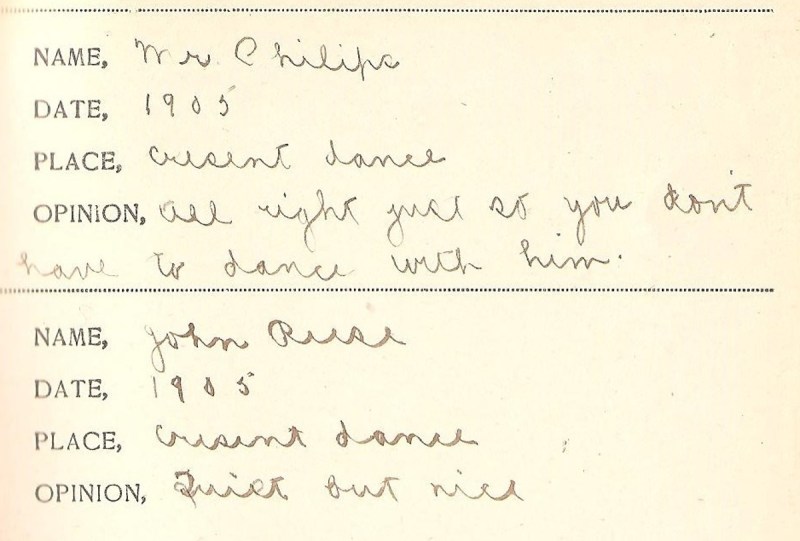 NAME, Mr. Philips
DATE, 1905
PLACE, Cresent dance
OPINION, All right just so you don't
have to dance with him.
NAME, John Reese
DATE, 1905
PLACE, Cresent dance
OPINION, Quiet but nice